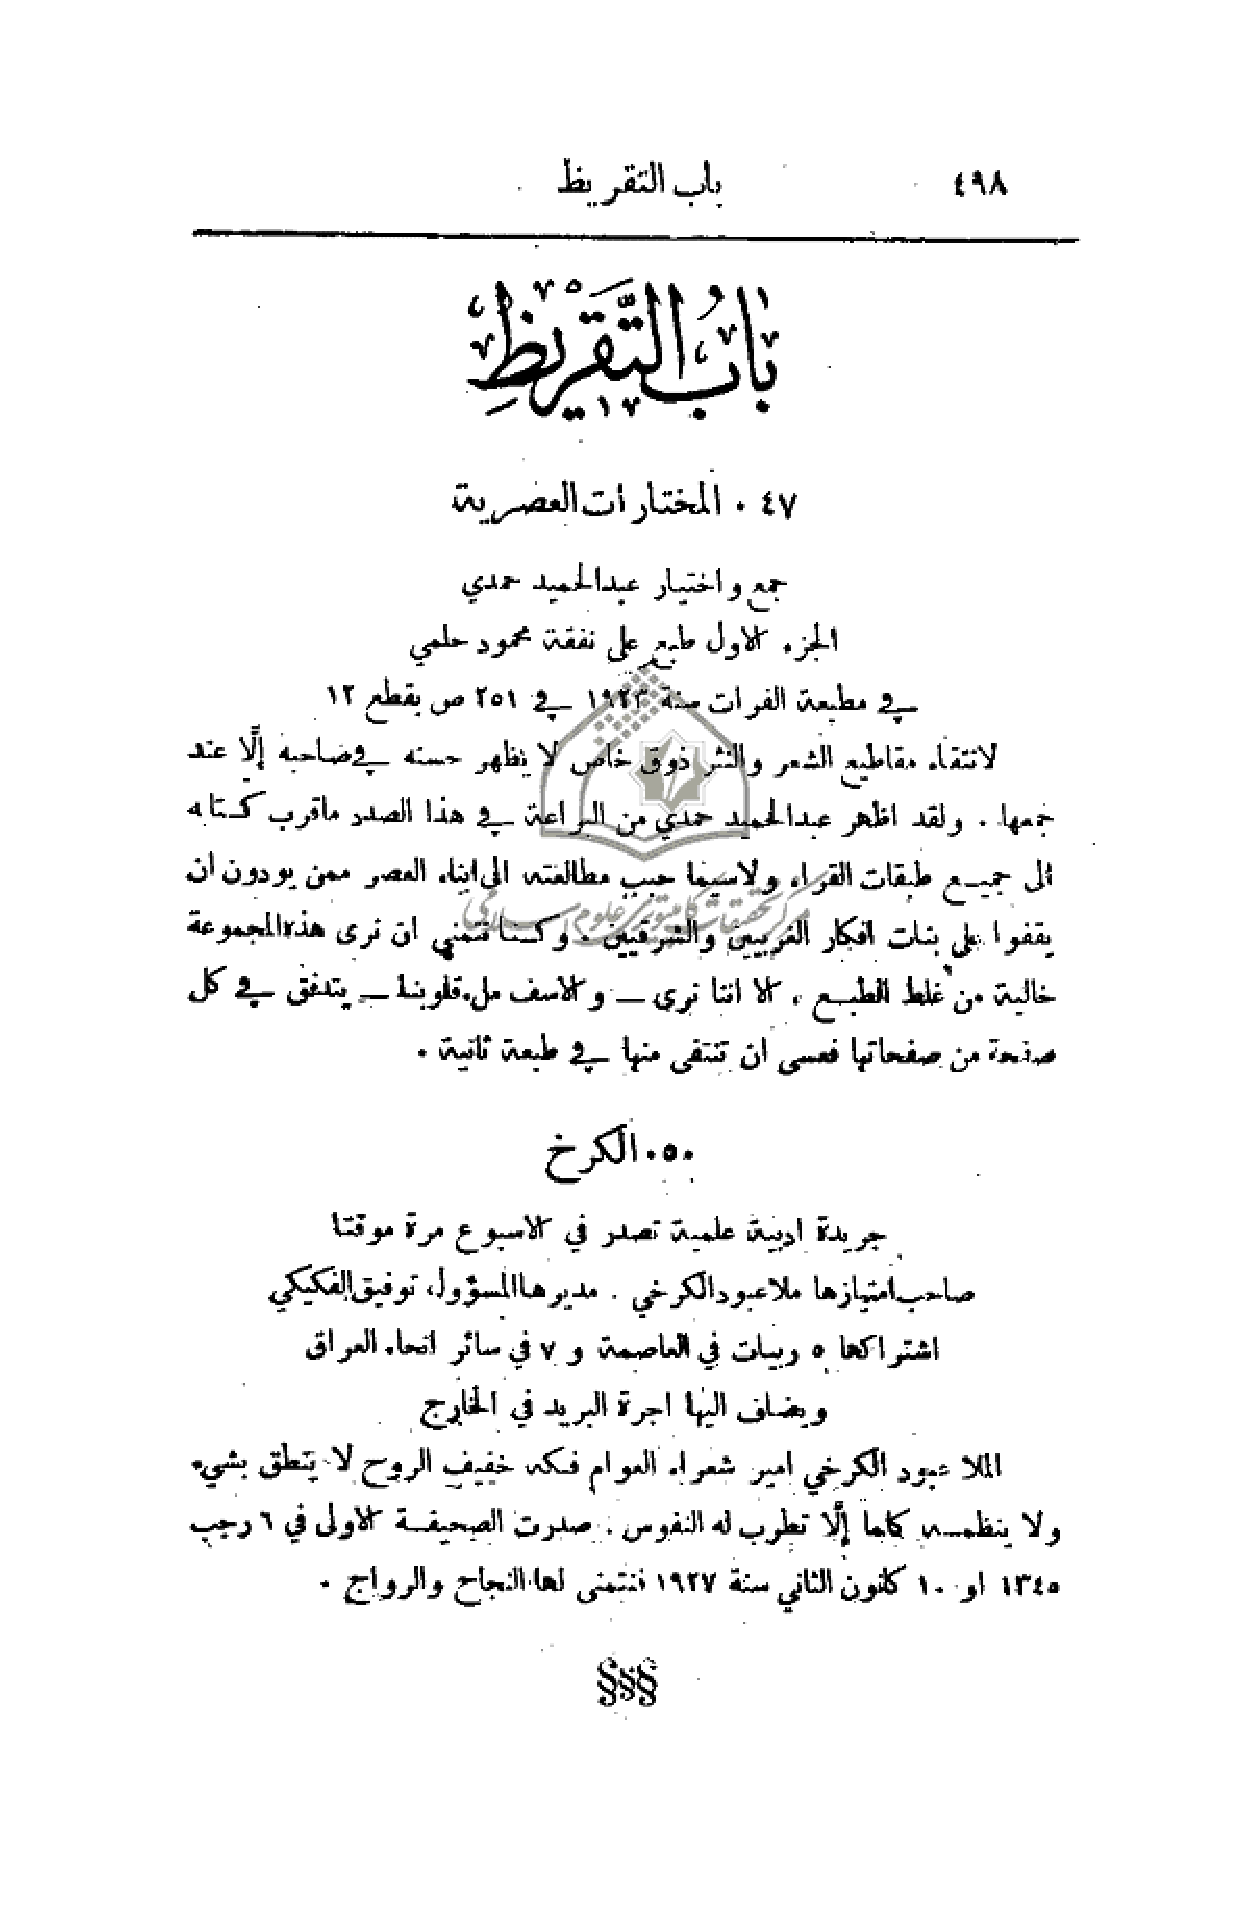 ٤٩٨ باب التقريظ
بَابُ التَّقْرِيْظِ
٤٧ . المختارات العصرية
جمع واختيار عبد الحميد حمدي
الجزء الاول طبع على نفقة محمود حلمي
في مطبعة الفرات سنة ١٩٢٣ في ٢٥١ ص بقطع ١٢
لانتقاء مقاطيع الشعر والنثر ذوق خاص لا يظهر حسنه في صاحبه إلَّا عند
جمعها . ولقد اظهر عبد الحميد حمدي من البراعة في هذا الصدد ما قرب كتابه
الى جميع طبقات القراء ولاسيما حبب مطالعته الى ابناء العصر ممن يودون ان
يقفوا على بنات افكار الغربيين والشرقيين . وكنا نتمنى ان نرى هذه المجموعة
خالية من غلط الطبع ، الا اننا نرى — والاسف ملء قلوبنا — يتدفق في كل
صفحة من صفحاتها فعسى ان تنتفى منها في طبعة ثانية .
٥٠ . الكرخ
جريدة ادبية علمية تصدر في الاسبوع مرة موقتا
صاحب امتيازها ملا عبود الكرخي . مديرها المسؤول، توفيق الفكيكي
اشتراكها ٥ ربيات في العاصمة و ٧ في سائر انحاء العراق
ويضاف اليها اجرة البريد في الخارج
الملا عبود الكرخي امير شعراء العوام فكه خفيف الروح لا ينطق بشيء
ولا ينظمه كاما إلَّا تطرب له النفوس . صدرت الصحيفة الاولى في ٦ رجب
١٣٤٥ او ١٠ كانون الثاني سنة ١٩٢٧ فنتمنى لها النجاح والرواج .
§§§
مركز تحقيقات كامپيوتري علوم اسلامى